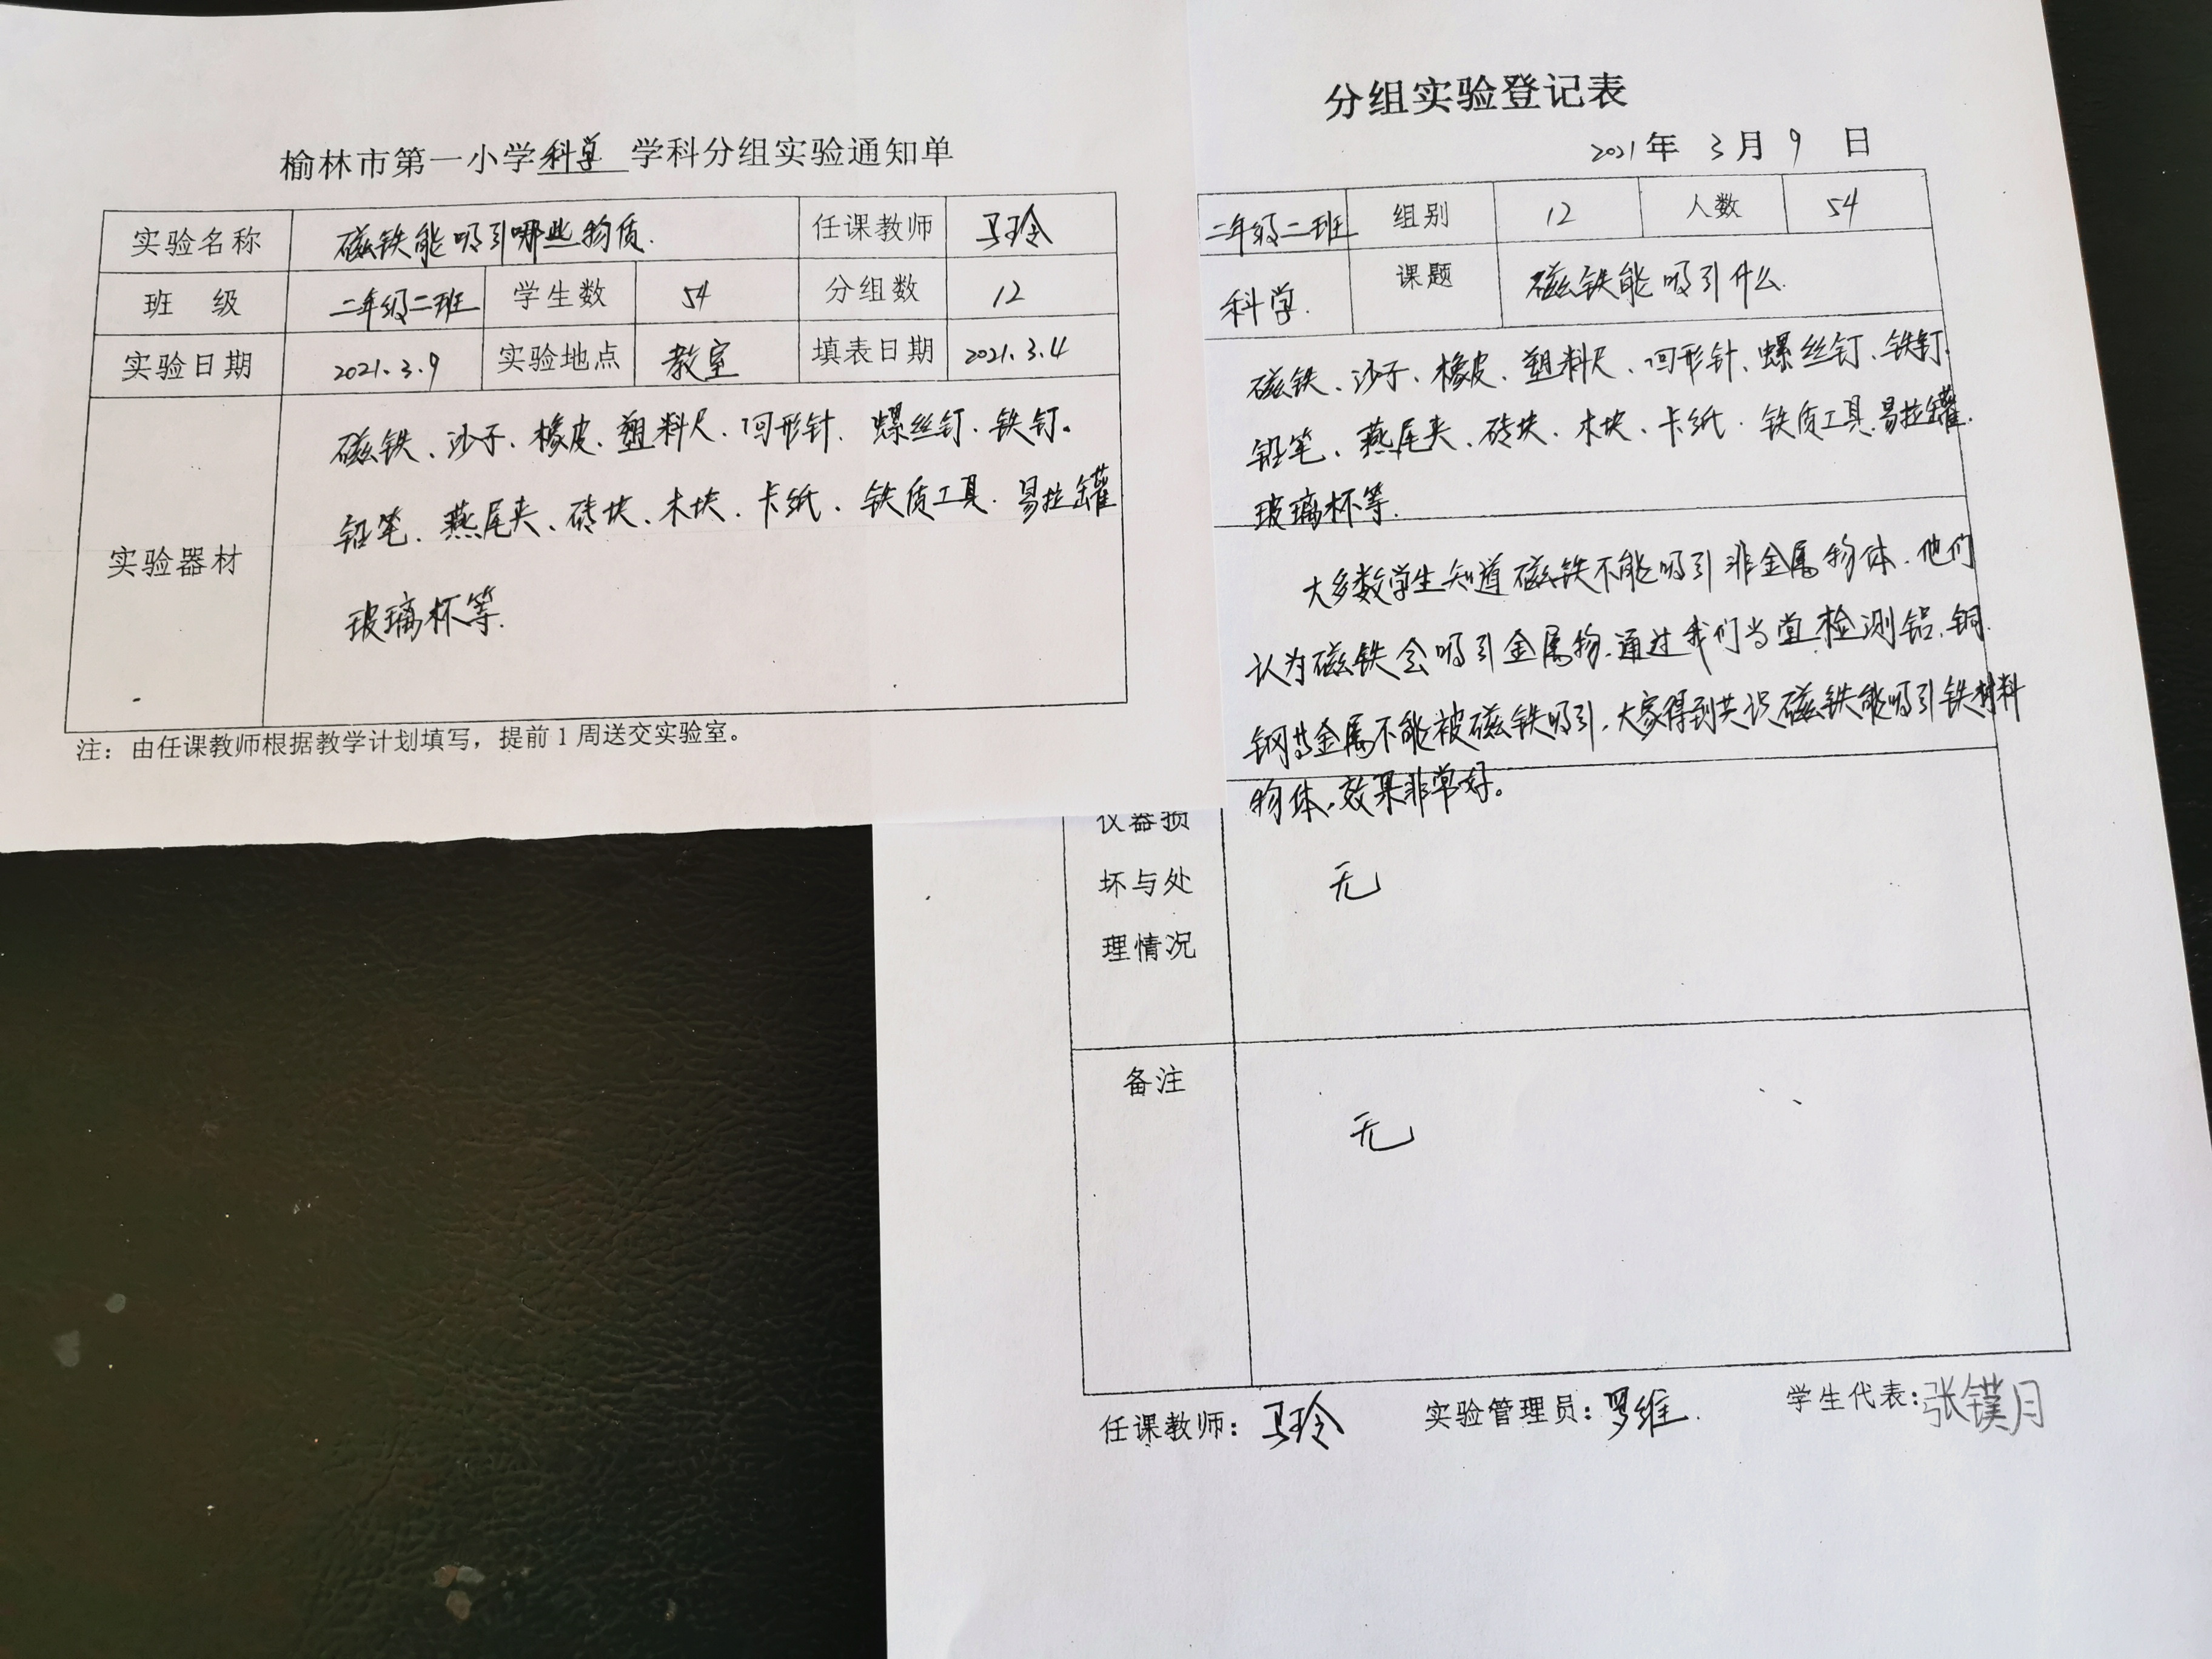 榆林市第一小学科学 学科分组实验通知单
实验名称 磁铁能吸引哪些物质. 任课教师 马玲
班 级 二年级二班 学生数 54 分组数 12
实验日期 2021.3.9 实验地点 教室 填表日期 2021.3.4
实验器材
磁铁、沙子、橡皮、塑料尺、回形针、螺丝钉、铁钉。
铅笔、燕尾夹、砖块、木块、卡纸、铁质工具、易拉罐
玻璃杯等.
注：由任课教师根据教学计划填写，提前1周送交实验室。
分组实验登记表
2021年 3月 9 日
二年级二班 组别 12 人数 54
科学. 课题 磁铁能吸引什么.
磁铁、沙子、橡皮、塑料尺、回形针、螺丝钉、铁钉.
铅笔、燕尾夹、砖块、木块、卡纸、铁质工具.易拉罐.
玻璃杯等.
大多数学生知道磁铁不能吸引非金属物体.他们
认为磁铁会吸引金属物.通过我们当堂检测铝.铜.
钢等金属不能被磁铁吸引.大家得到共识磁铁能吸引铁材料
物体.效果非常好。
仪器损
坏与处
理情况
无
备注
无
任课教师：马玲 实验管理员：罗维. 学生代表：张镤月